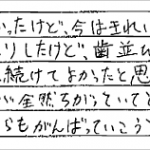 かったけど、今はきれい
りしたけど、歯並び
続けてよかったと思
全然ちがっていてと
らもがんばっていこう